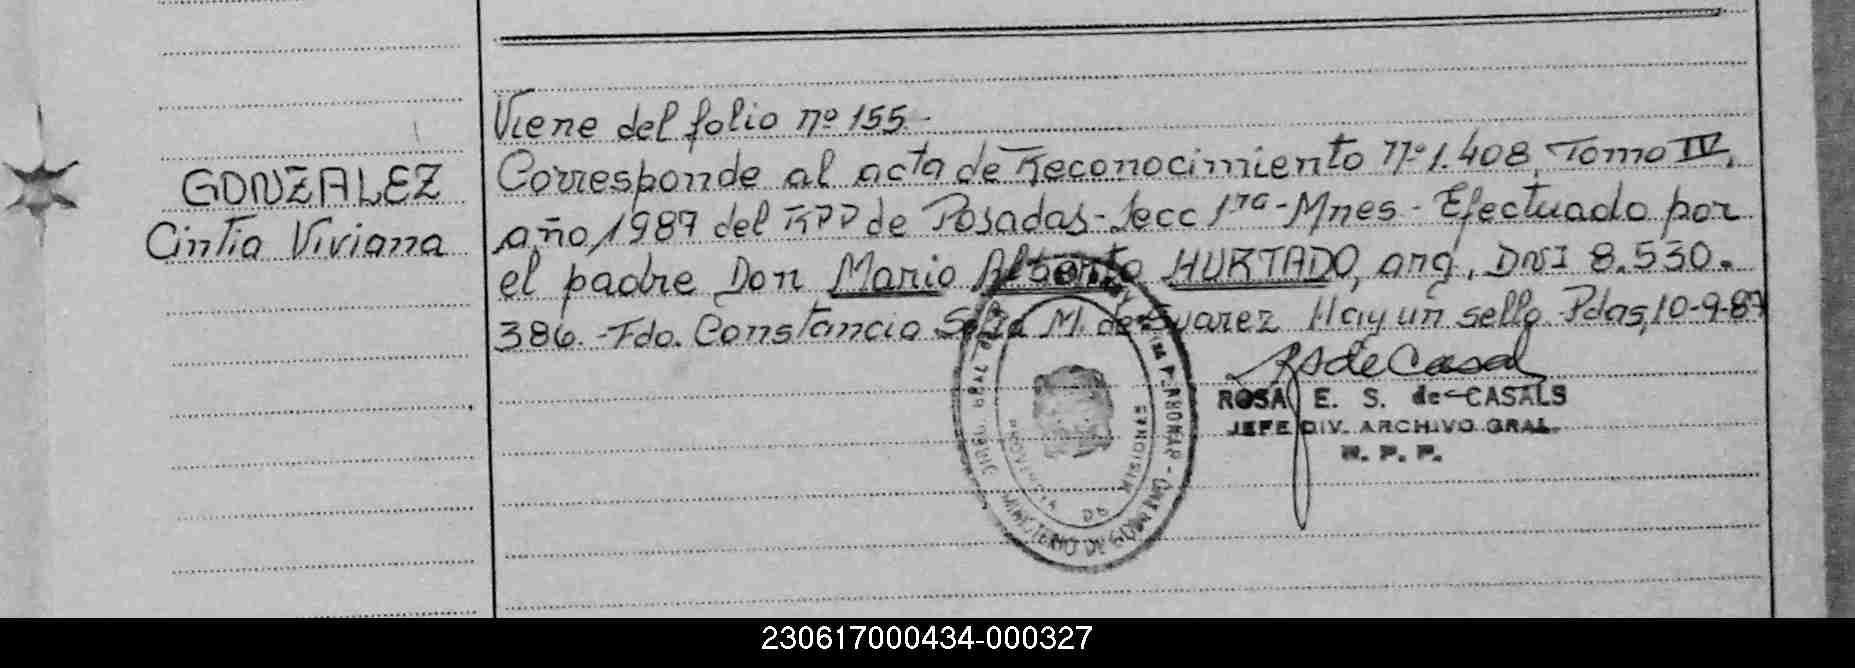 Viene del folio nº 155.-
GONZALEZ
Cintia Viviana
Corresponde al acta de Reconocimiento Nº 1.408, Tomo IV,
año 1987 del RPP de Posadas-Secc 1ra-Mnes- Efectuado por
el padre Don Mario Alberto HURTADO, arg, DNI 8.530.
386.-Fdo. Constancia Sofia M. de Suarez Hay un sello. Pdas, 10-9-87
RS de Casal
ROSA E. S. de CASALS
JEFE DIV. ARCHIVO GRAL.
R. P. P.
MINISTERIO DE GOBIERNO
DE
MISIONES
230617000434-000327